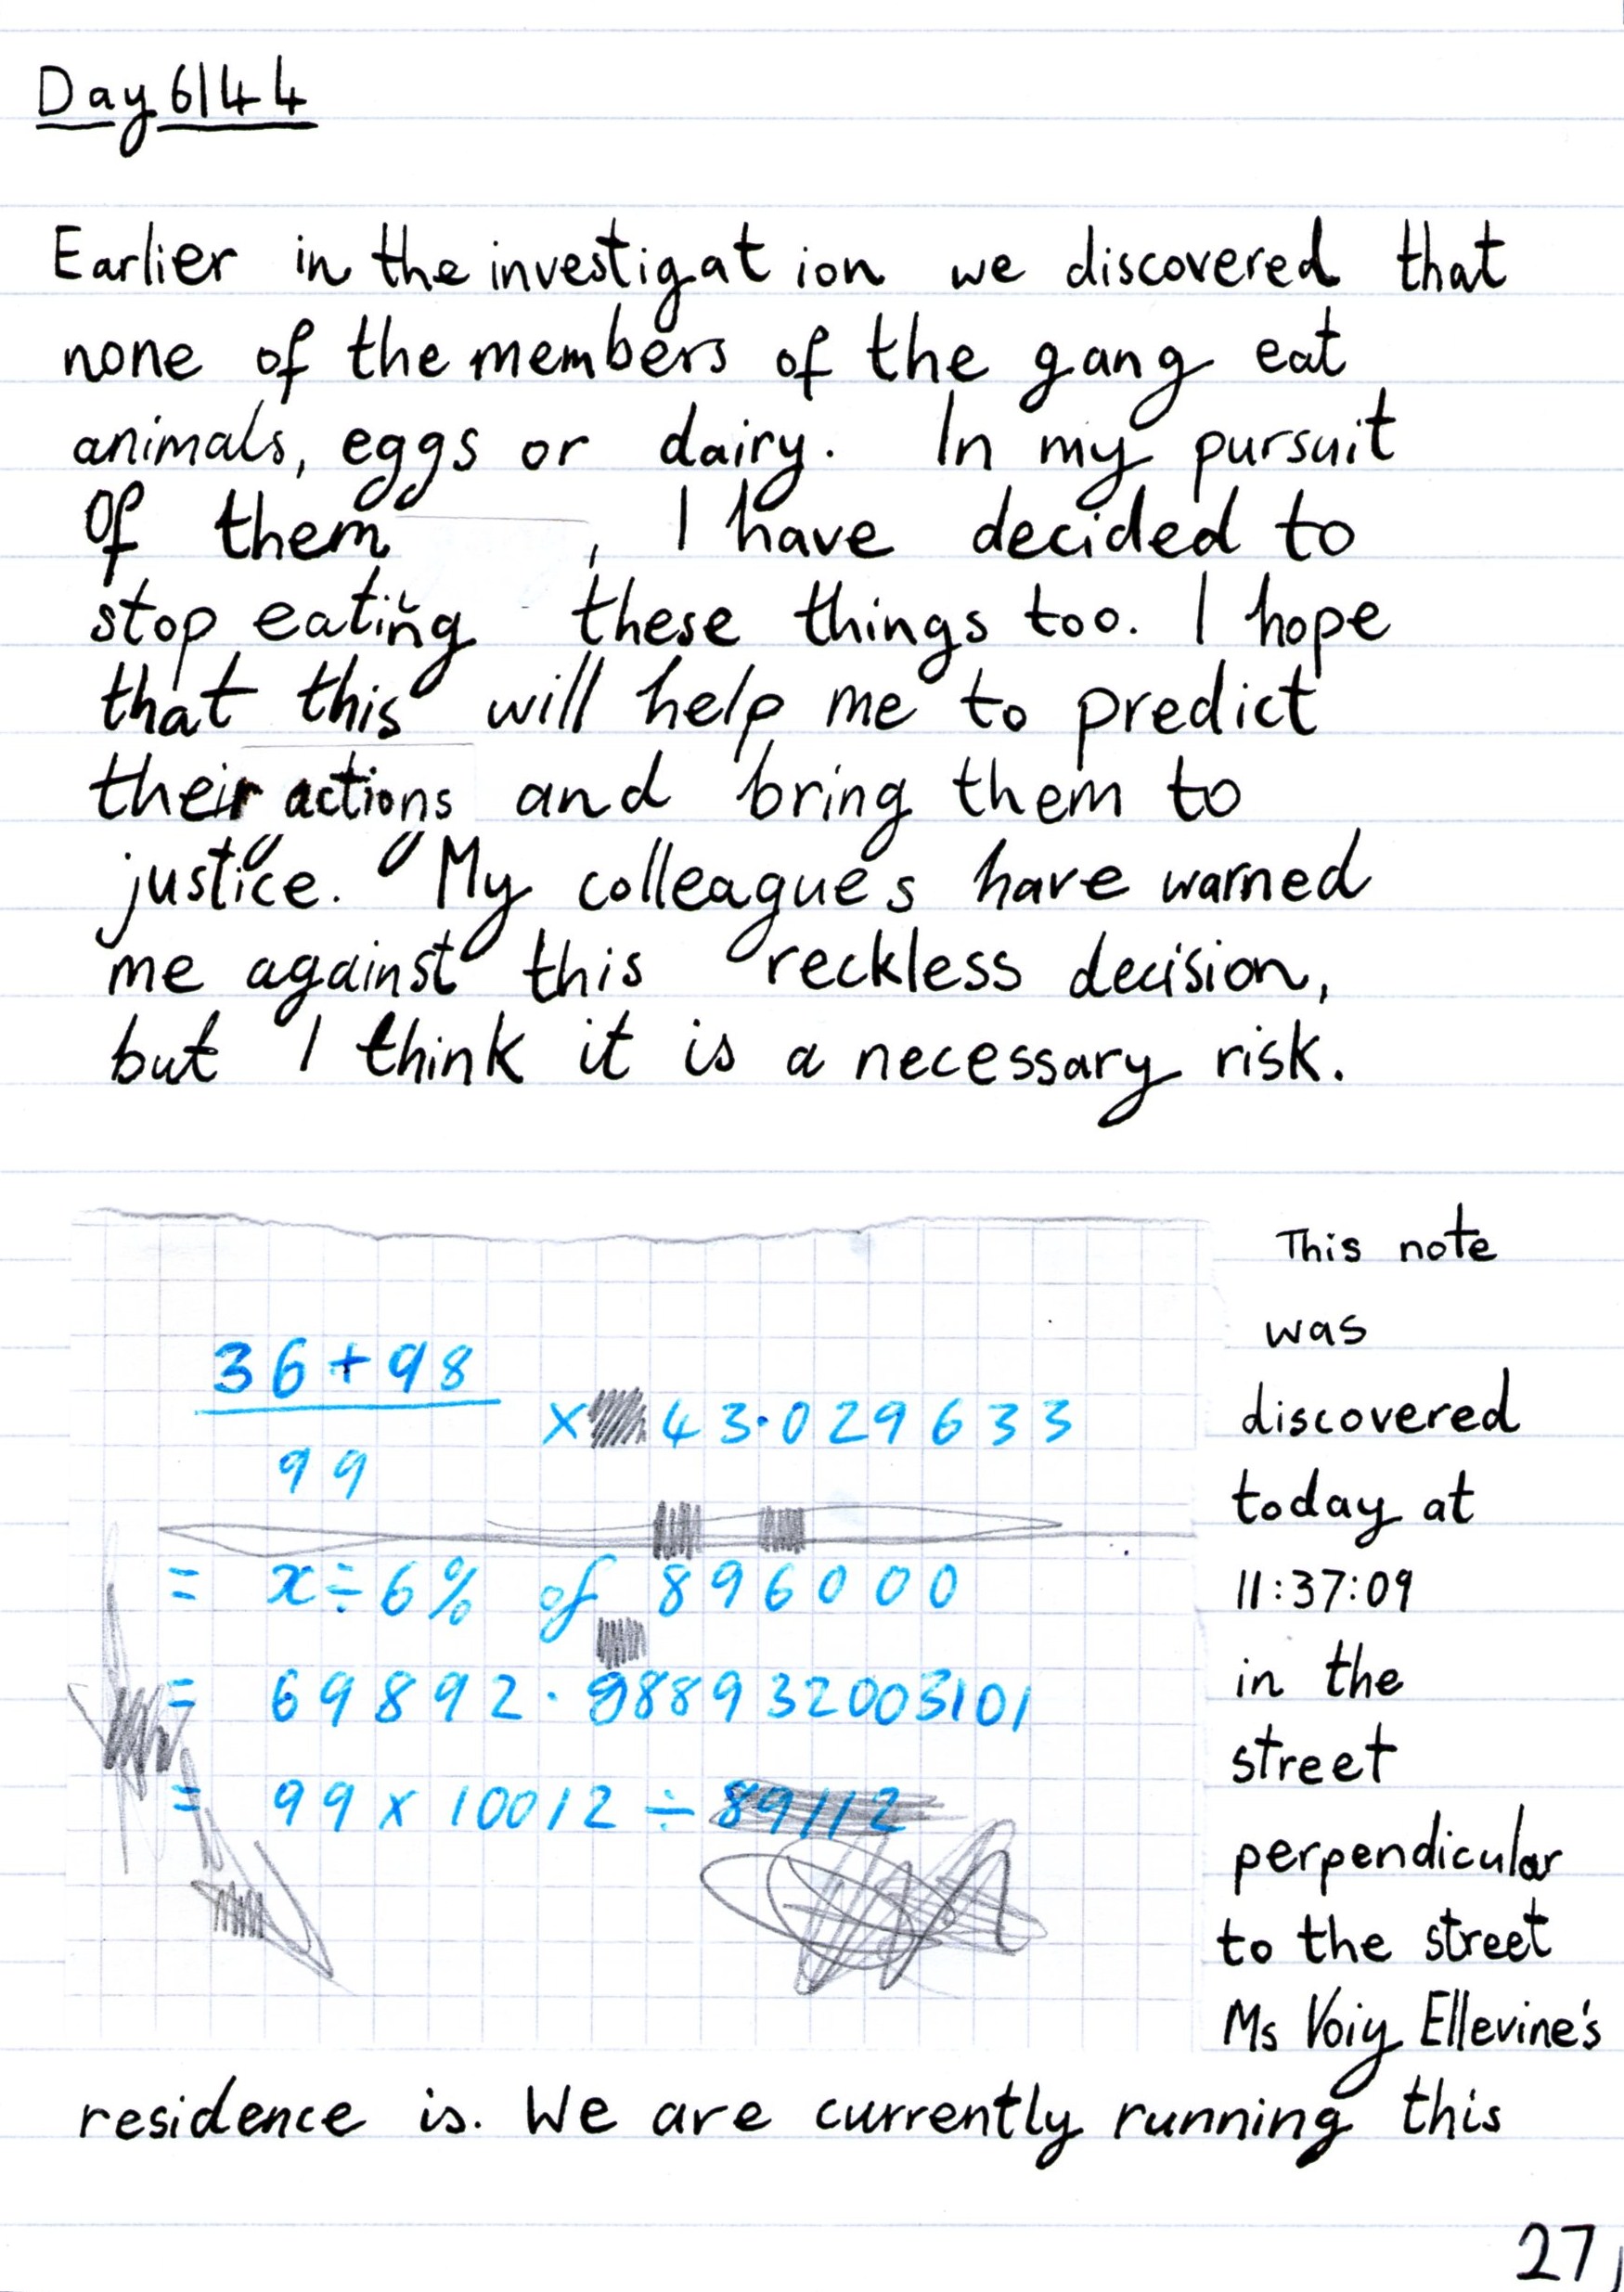 Day 6144
Earlier in the investigation we discovered that
none of the members of the gang eat
animals, eggs or dairy. In my pursuit
of them, I have decided to
stop eating these things too. I hope
that this will help me to predict
their actions and bring them to
justice. My colleagues have warned
me against this reckless decision,
but I think it is a necessary risk.
36+98
99
× 43·029633
= x÷6% of 896000
= 69892·988932003101
= 99 × 10012 ÷ 89112
This note
was
discovered
today at
11:37:09
in the
street
perpendicular
to the street
Ms Voiy Ellevine's
residence is. We are currently running this
27